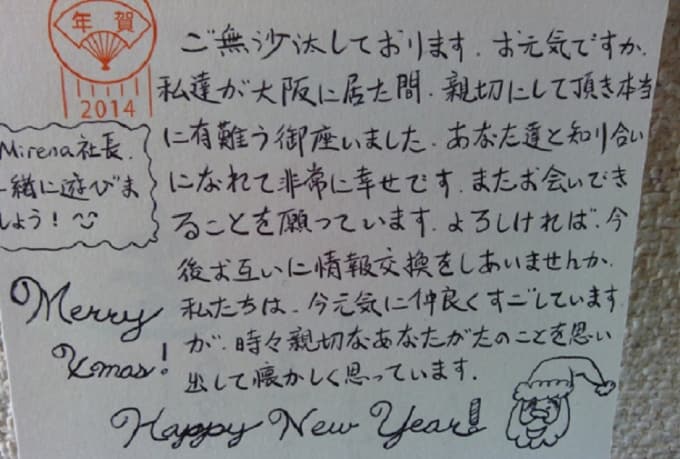 年賀
2014
ご無沙汰しております。お元気ですか。
私達が大阪に居た間、親切にして頂き本当
に有難う御座いました。あなた達と知り合い
になれて非常に幸せです。またお会いでき
ることを願っています。よろしければ、今
後お互いに情報交換をしあいませんか。
私たちは、今元気に仲良くすごしています
が、時々親切なあなたがたのことを思い
出して懐かしく思っています。
Mirena社長、
一緒に遊びま
しょう!
Merry
Xmas!
Happy New Year!